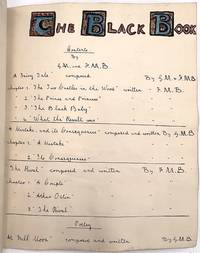 THE BLACK BOOK
Contents
By
G.M. and F.M.B.
A Fairy Tale" composed By G.M & F.M.B.
chapter 1. "The Two Castles in the Wood" written - F.M.B.
" 2 "The Prince and Princess" " "
" 3 "The Black Baby" " "
" 4 "What the Result was" " "
A Mistake, and its Consequences" composed and written By G.M.B
chapter 1. A Mistake" " "
" 2 "Its Consequences" " "
"The Rival" composed and written By F.M.B.
chapter 1 "A Couple" " "
" 2 "
" 3 "The Rival" " "
Poetry
composed and written By G.M.B.